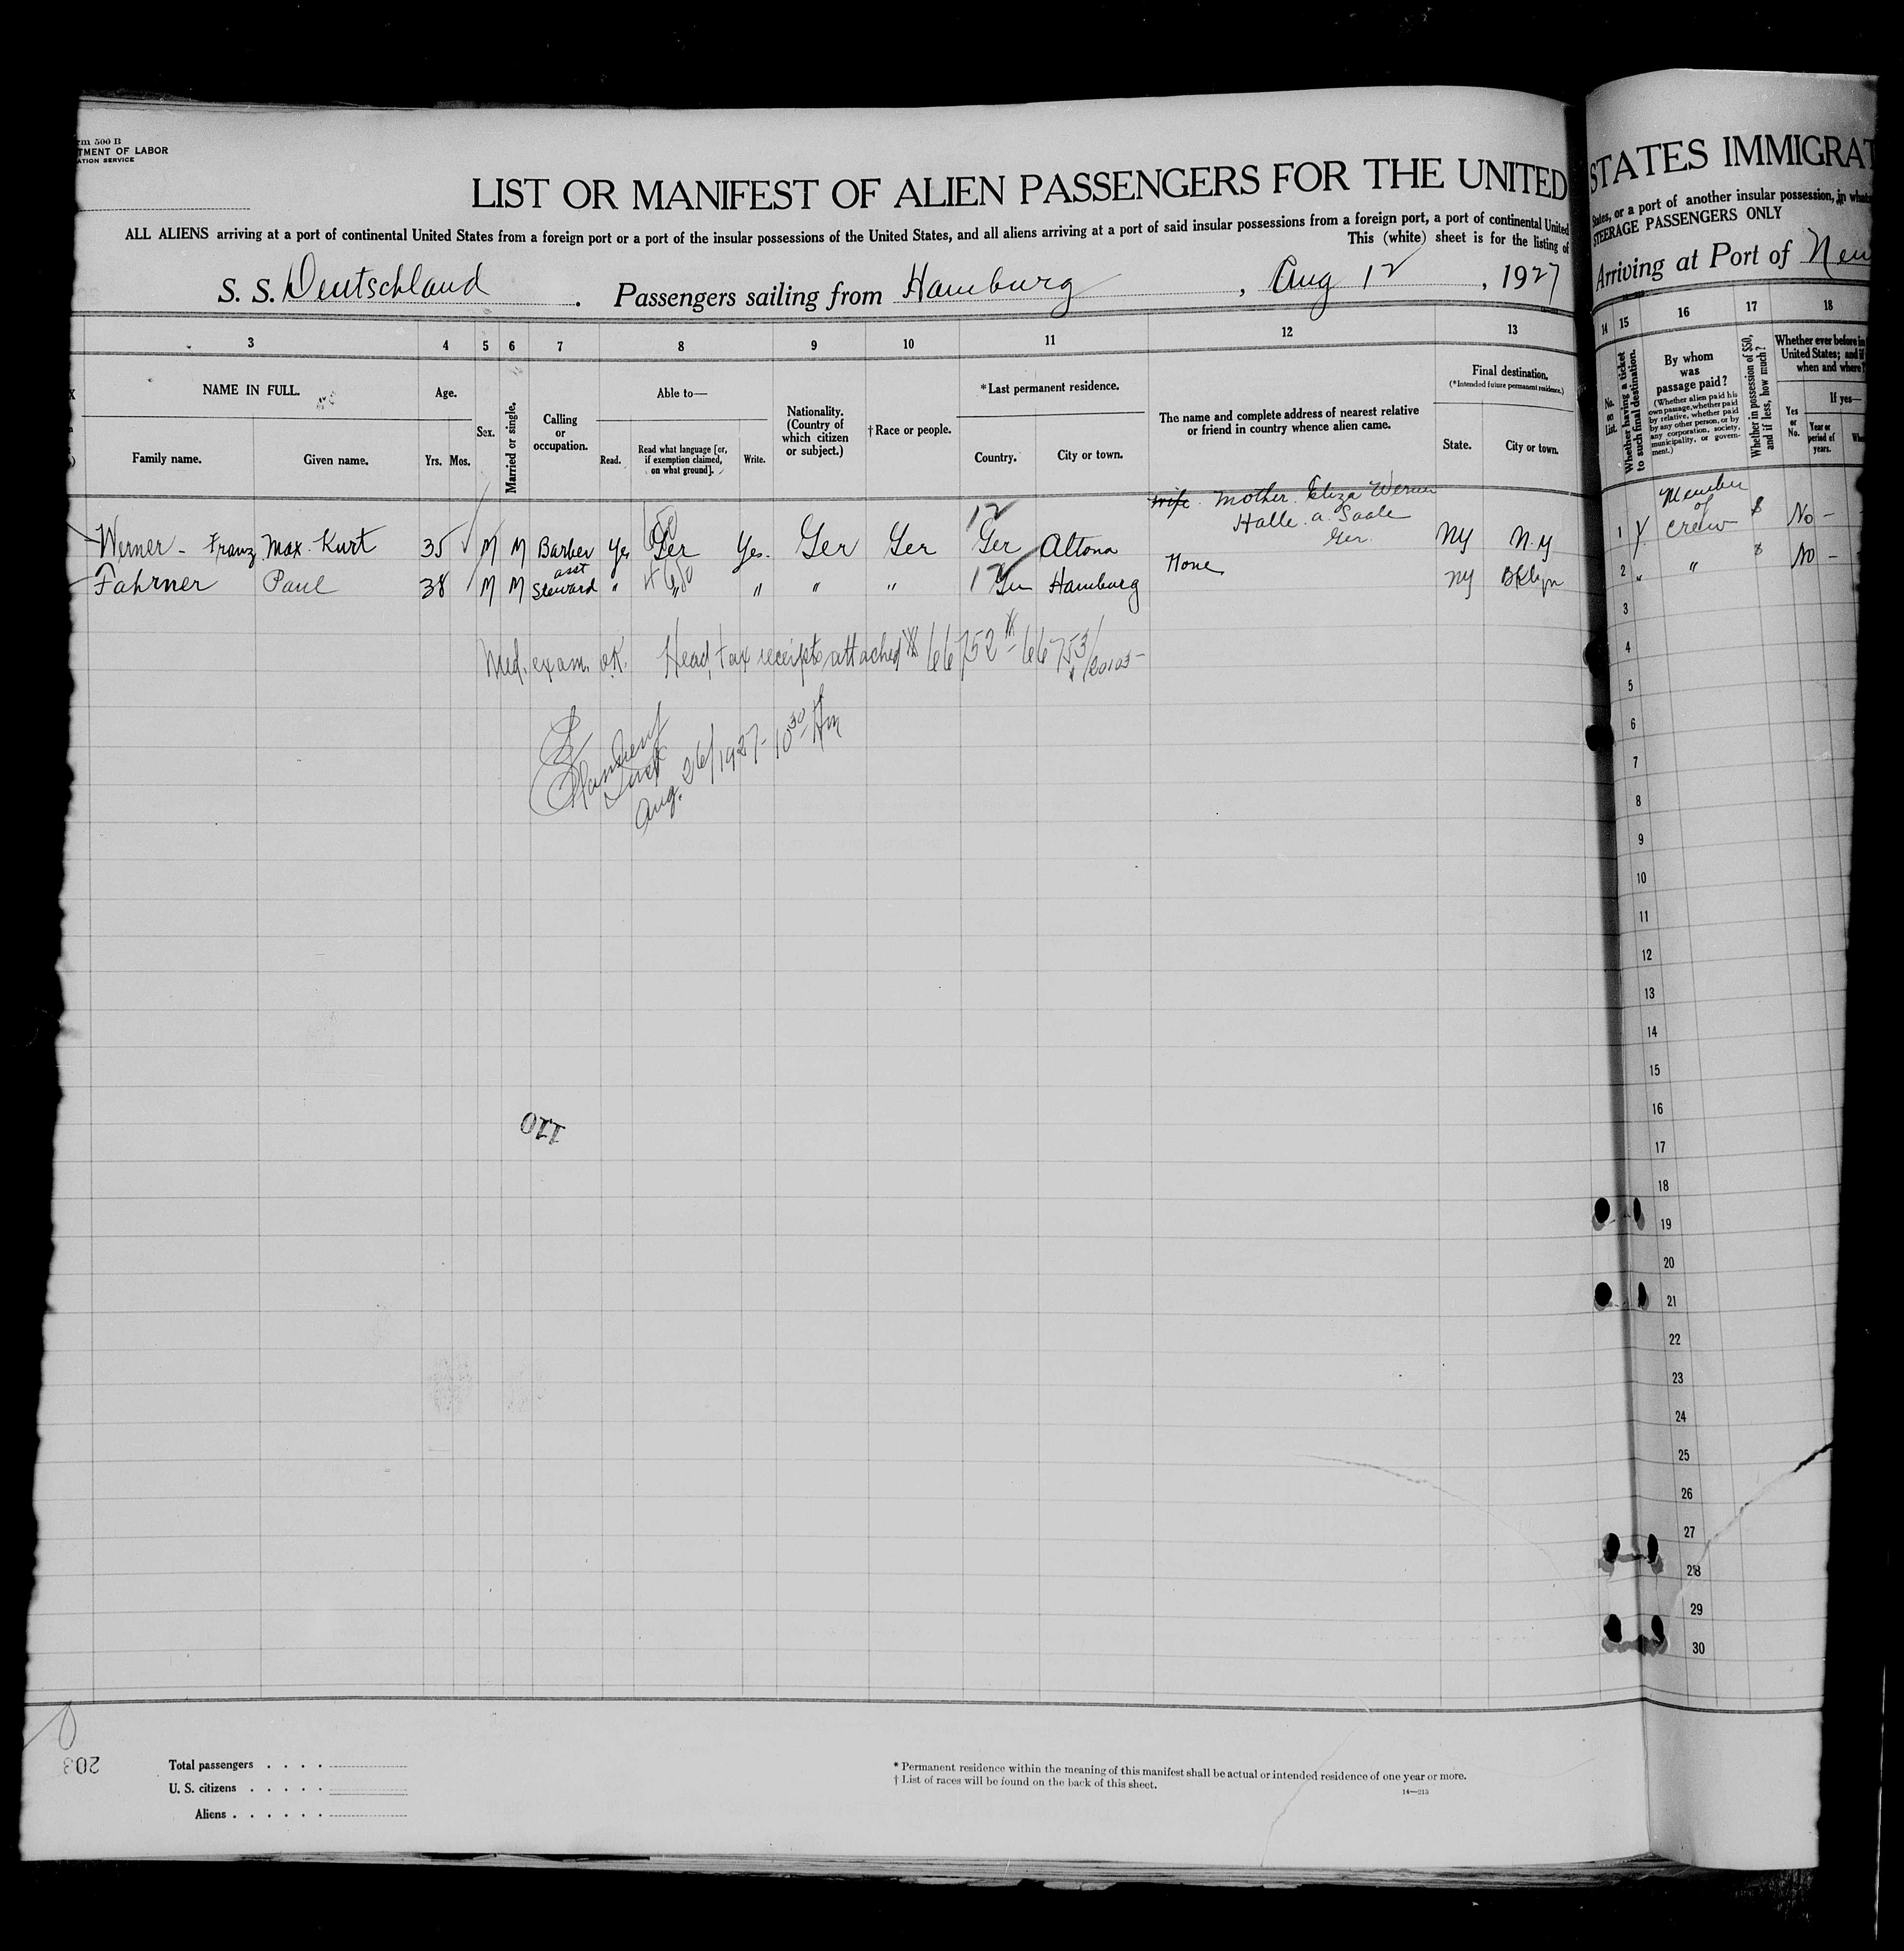 rm 500 B
TMENT OF LABOR
ATION SERVICE
LIST OR MANIFEST OF ALIEN PASSENGERS FOR THE UNITED
ALL ALIENS arriving at a port of continental United States from a foreign port or a port of the insular possessions of the United States, and all aliens arriving at a port of said insular possessions from a foreign port, a port of continental United
This (white) sheet is for the listing of
S. S. Deutschland . Passengers sailing from Hamburg , Aug 12 , 1927
3 4 5 6 7 8 9 10 11 12 13
NAME IN FULL.
Family name. Given name.
Age.
Yrs. Mos.
Sex.
Married or single.
Calling
or
occupation.
Able to—
Read.
Read what language [or,
if exemption claimed,
on what ground].
Write.
Nationality.
(Country of
which citizen
or subject.)
† Race or people.
* Last permanent residence.
Country. City or town.
The name and complete address of nearest relative
or friend in country whence alien came.
Final destination.
(* Intended future permanent residence.)
State. City or town.
wife mother Eliza Werner
Halle a. Saale
Ger.
Werner - Franz Max Kurt 35 M M Barber Yes Ger Yes. Ger Ger Ger Altona NY N.Y
Fahrner Paul 38 M M asst Steward " " " " " Ger Hamburg None NY BKlyn
12
12
Med. exam. O.K. Head tax receipts attached # 66752 - # 66753
Aug. 26/1927 - 10 30 Am
110
203
Total passengers . . . .
U. S. citizens . . . . .
Aliens . . . . . .
* Permanent residence within the meaning of this manifest shall be actual or intended residence of one year or more.
† List of races will be found on the back of this sheet.
14—213
STATES IMMIGRAT
States, or a port of another insular possession, in what
STEERAGE PASSENGERS ONLY
Arriving at Port of New
14 15 16 17 18
No. on List.
Whether having a ticket
to such final destination.
By whom
was
passage paid?
(Whether alien paid his
own passage, whether paid
by relative, whether paid
by any other person, or by
any corporation, society,
municipality, or govern-
ment.)
Whether in possession of $50,
and if less, how much?
Whether ever before in
United States; and if
when and where?
Yes
or
No.
If yes—
Year or
period of
years.
Whe
1 y Member of crew $ No -
2 " " $ No -
3
4
5
6
7
8
9
10
11
12
13
14
15
16
17
18
19
20
21
22
23
24
25
26
27
28
29
30